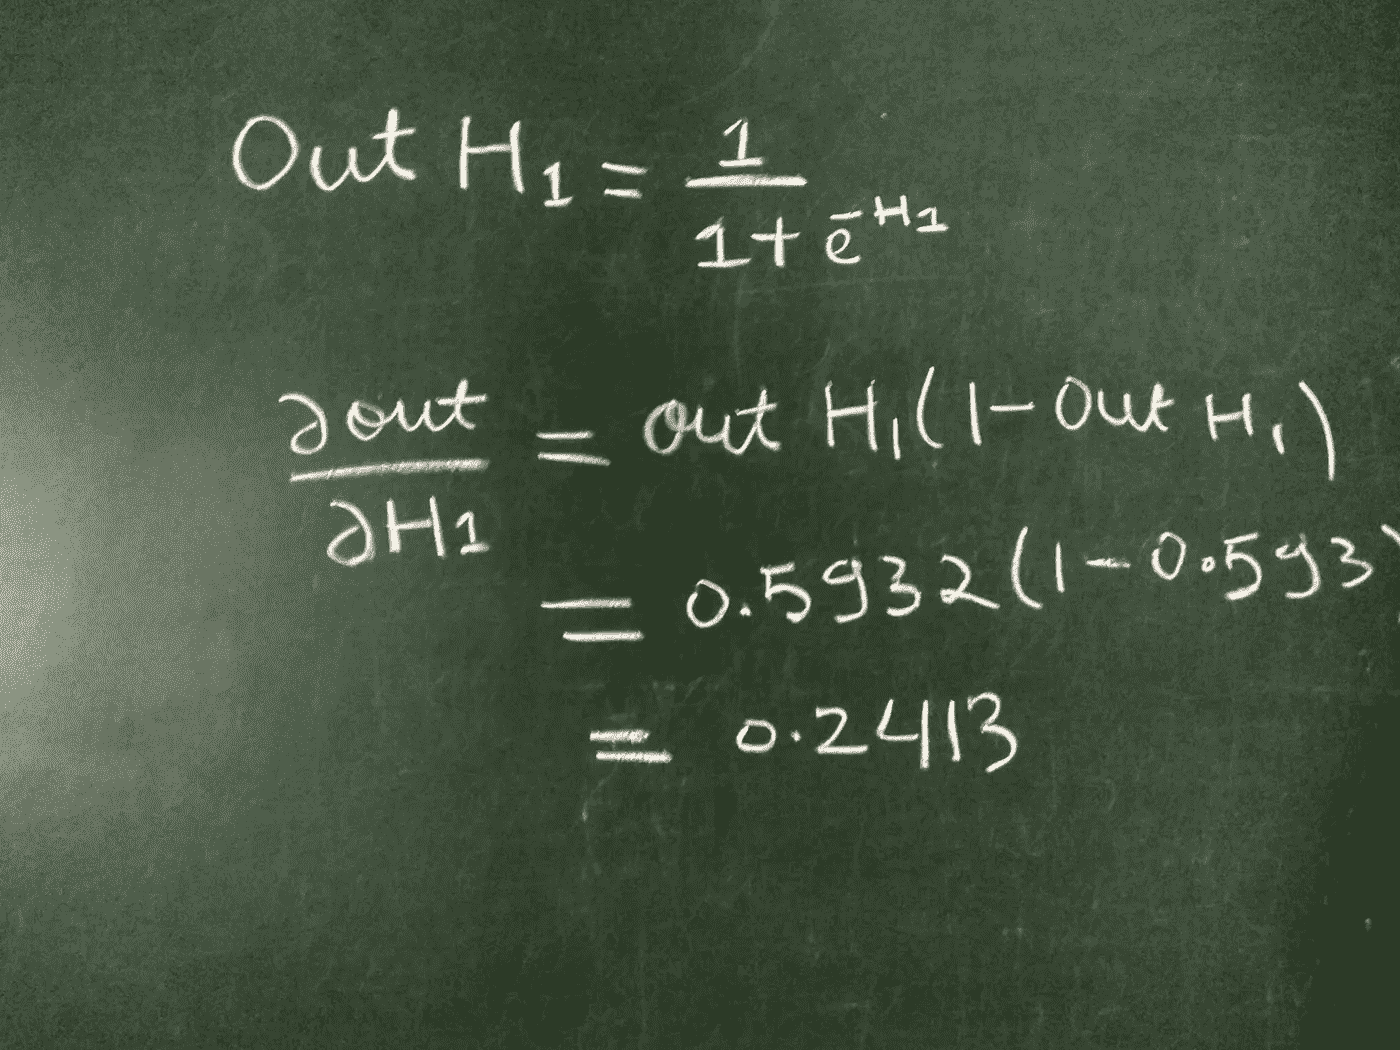 Out H1 = 1 / 1 + e^-H1
∂out / ∂H1 = out H1 (1 - Out H1)
= 0.5932 (1 - 0.593)
= 0.2413